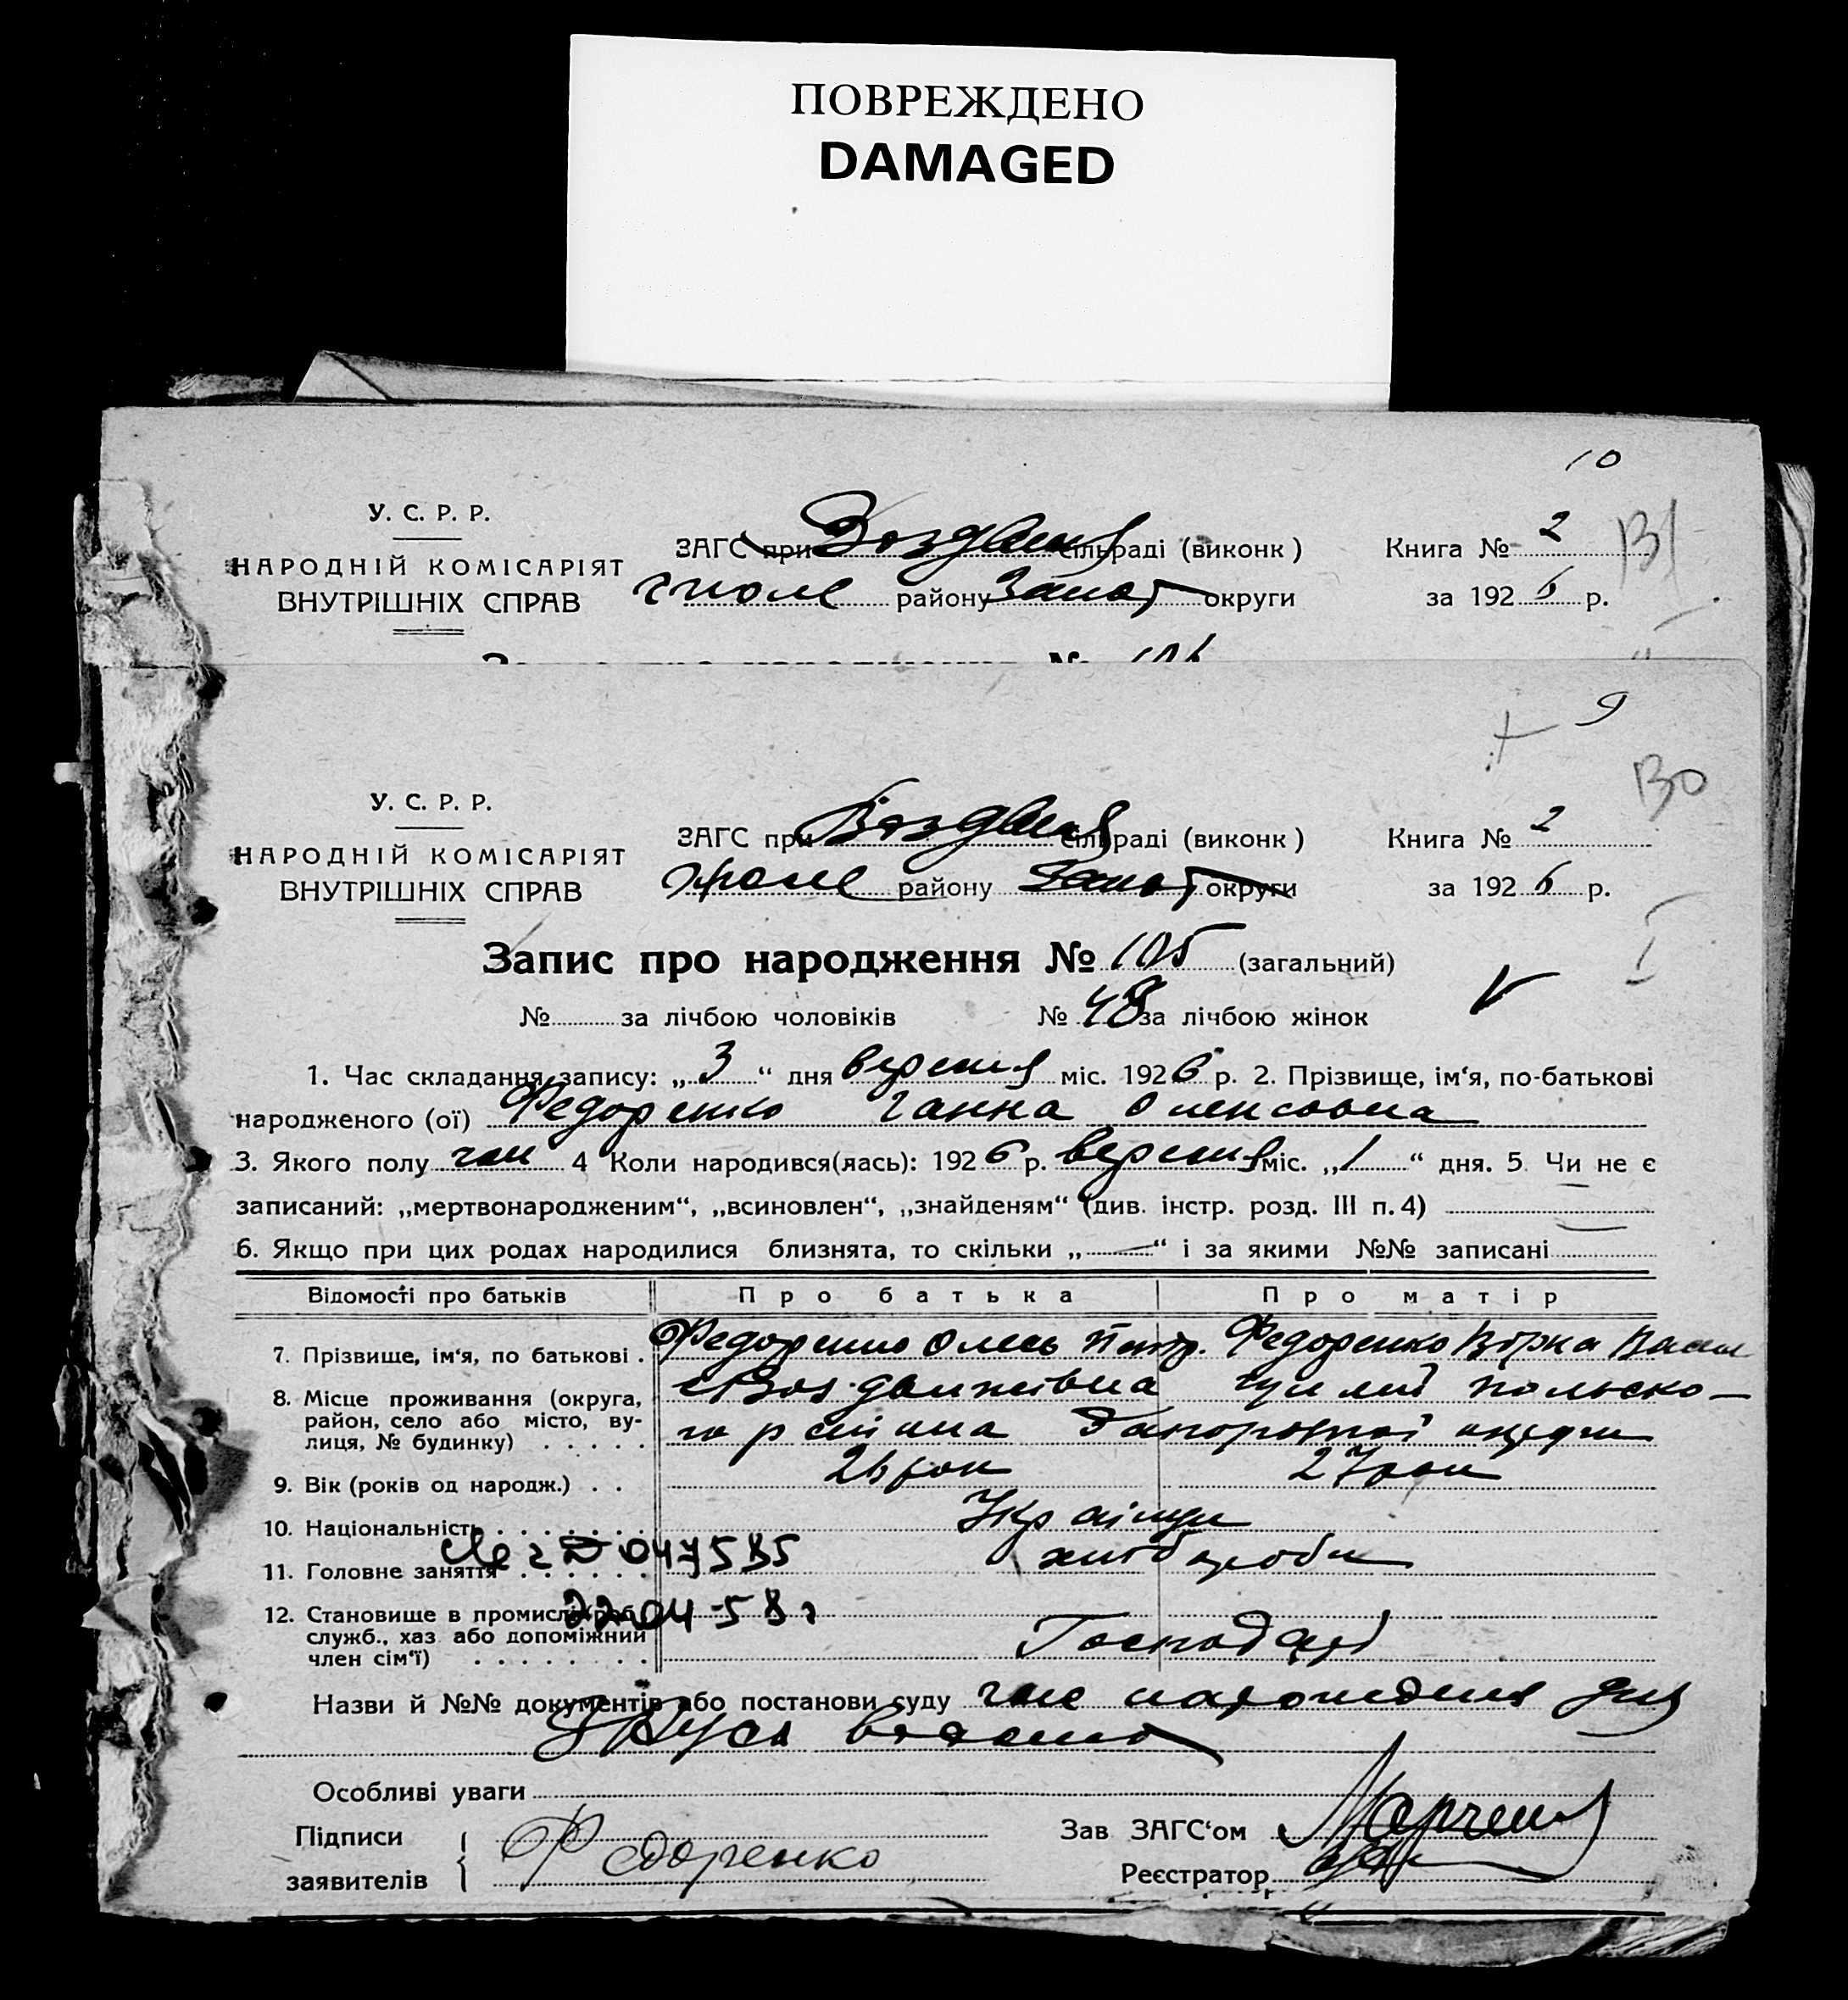 ПОВРЕЖДЕНО
DAMAGED
10
У. С. Р. Р.
НАРОДНІЙ КОМІСАРІЯТ
ВНУТРІШНІХ СПРАВ
ЗАГС при Воздвиж сільраді (виконк)
района Запор округи
Книга № 2
за 1926 р.
131
№ 106
9
130
У. С. Р. Р.
НАРОДНІЙ КОМІСАРІЯТ
ВНУТРІШНІХ СПРАВ
ЗАГС при Воздвиж сільраді (виконк)
району Запор округи
Книга № 2
за 1926 р.
Запис про народження № 105 (загальний)
№ за лічбою чоловіків № 48 за лічбою жінок
1. Час складання запису: „3“ дня вересня міс. 1926 р. 2. Прізвище, ім‘я, по-батькові
народженого (ої) Федоренко Ганна Олексовна
3. Якого полу жін 4 Коли народився(лась): 1926 р. вересня міс. „1“ дня. 5 Чи не є
записаний: „мертвонародженим“, „всиновлен“, „знайденям“ (див. інстр. розд. III п. 4)
6. Якщо при цих родах народилися близнята, то скільки „—“ і за якими №№ записані
Відомості про батьків Про батька Про матір
7. Прізвище, ім‘я, по батькові. Федоренко Олесь Петр. Федоренко Вірка Васил
8. Місце проживання (округа, район, село або місто, вулиця, № будинку) Воздвижівка польсько-
го району Запорозької округи
9. Вік (років од народж.) 26 рок 27 рок
10. Національність Українці
11. Головне заняття хлібороби
047585
22-04-58 г
12. Становище в промислі (роб.
служб., хаз або допоміжний
член сім‘ї) Господарі
Назви й №№ документів або постанови суду
Особливі уваги
Підписи
заявителів Федоренко
Зав ЗАГС‘ом
Реєстратор